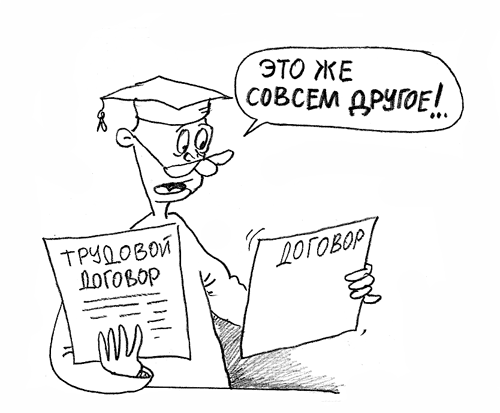 ЭТО ЖЕ
СОВСЕМ ДРУГОЕ!..
ТРУДОВОЙ
ДОГОВОР
ДОГОВОР